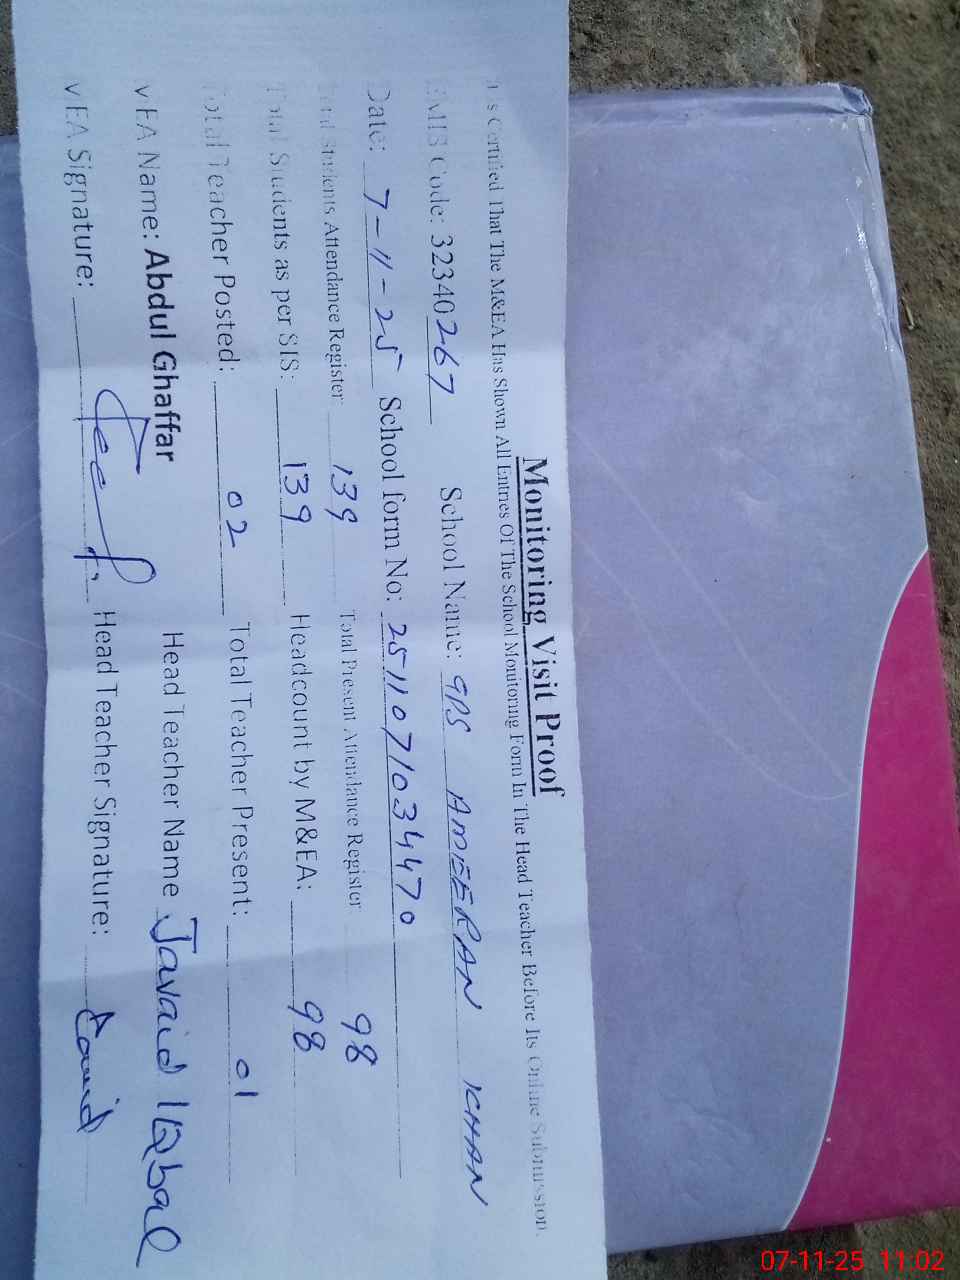 Monitoring Visit Proof
It is Certified That The M&EA Has Shown All Entries Of The School Monitoring Form In The Head Teacher Before Its Online Submission.
EMIS Code: 32340267 School Name: GPS AMEERAN KHAN
Date: 7-11-25 School form No: 2511071034470
Total Students Attendance Register: 139 Total Present Attendance Register: 98
Total Students as per SIS: 139 Headcount by M&EA: 98
Total Teacher Posted: 02 Total Teacher Present: 01
MEA Name: Abdul Ghaffar Head Teacher Name Javaid Iqbal
MEA Signature: Head Teacher Signature: Javaid
07-11-25 11:02